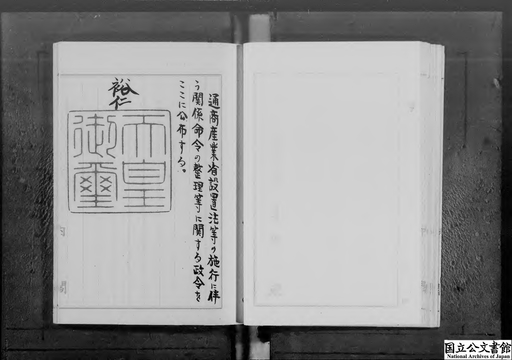 通商産業省設置法等の施行に伴
う関係命令の整理等に関する政令を
ここに公布する。
裕仁
天皇
御璽
国立公文書館
National Archives of Japan